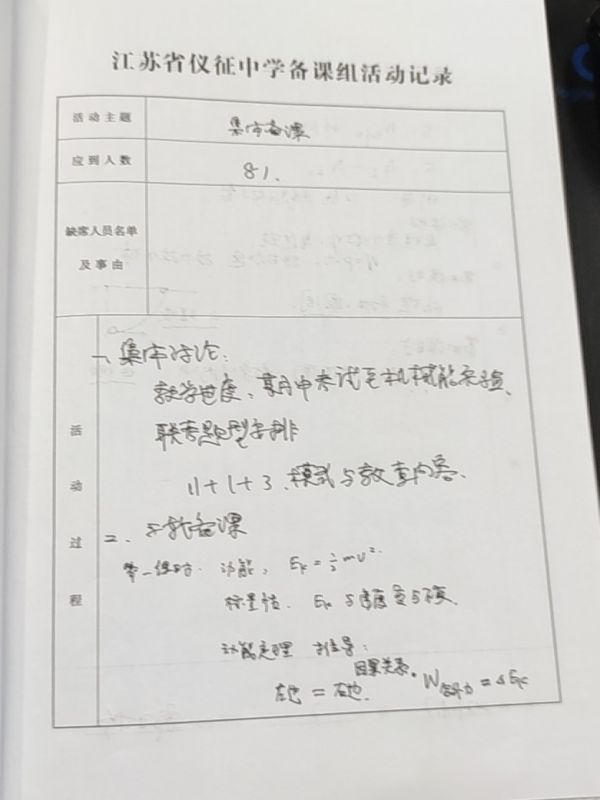 江苏省仪征中学备课组活动记录
活动主题 集体备课
应到人数 81.
缺席人员名单
及事由
活动过程
一、集体讨论:
教学进度、期中考试至机械能实验、
联考题型安排
11+1+3、模式与教查内容、
二、备课
第一课时. 动能, Ek=½mv².
标量性. Ek与
动能定理 推导:
因果关系.
左边 = 右边. W合外力=ΔEk